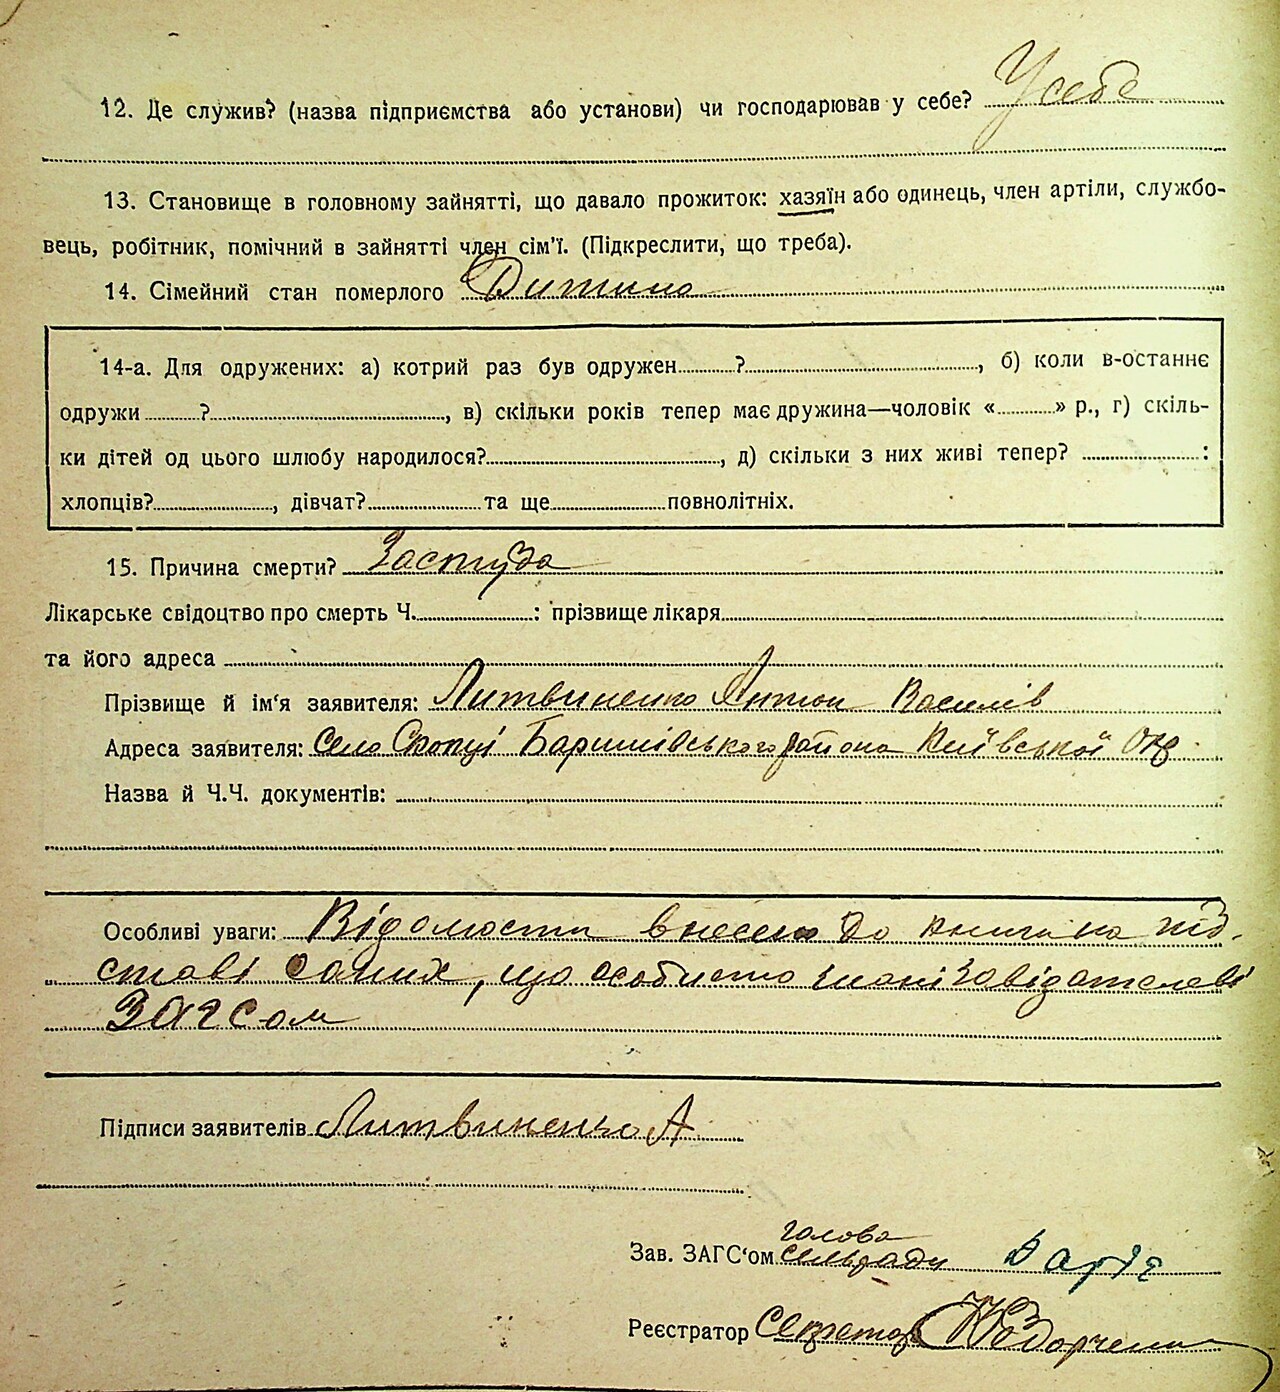 12. Де служив? (назва підприємства або установи) чи господарював у себе? У себе
13. Становище в головному зайнятті, що давало прожиток: хазяїн або одинець, член артіли, службо-
вець, робітник, помічний в зайнятті член сім'ї. (Підкреслити, що треба).
14. Сімейний стан померлого Дитина
14-а. Для одружених: а) котрий раз був одружен......?......, б) коли в-останнє
одружи......?......, в) скільки років тепер має дружина—чоловік «......» р., г) скіль-
ки дітей од цього шлюбу народилося?......, д) скільки з них живі тепер? ......:
хлопців?......, дівчат?...... та ще......повнолітніх.
15. Причина смерти? Застуда
Лікарське свідоцтво про смерть Ч.......: прізвище лікаря......
та його адреса
Прізвище й ім'я заявителя: Литвиненко Антон Василів
Адреса заявителя: Село Баришівського района Київської Окр.
Назва й Ч.Ч. документів:
Особливі уваги: Відомости внесено до книги на під-
ставі даних, що особисто знані завідателеві
ЗАГСом
Підписи заявителів Литвиненко А
голова
Зав. ЗАГС'ом сельради
Реєстратор Секретар